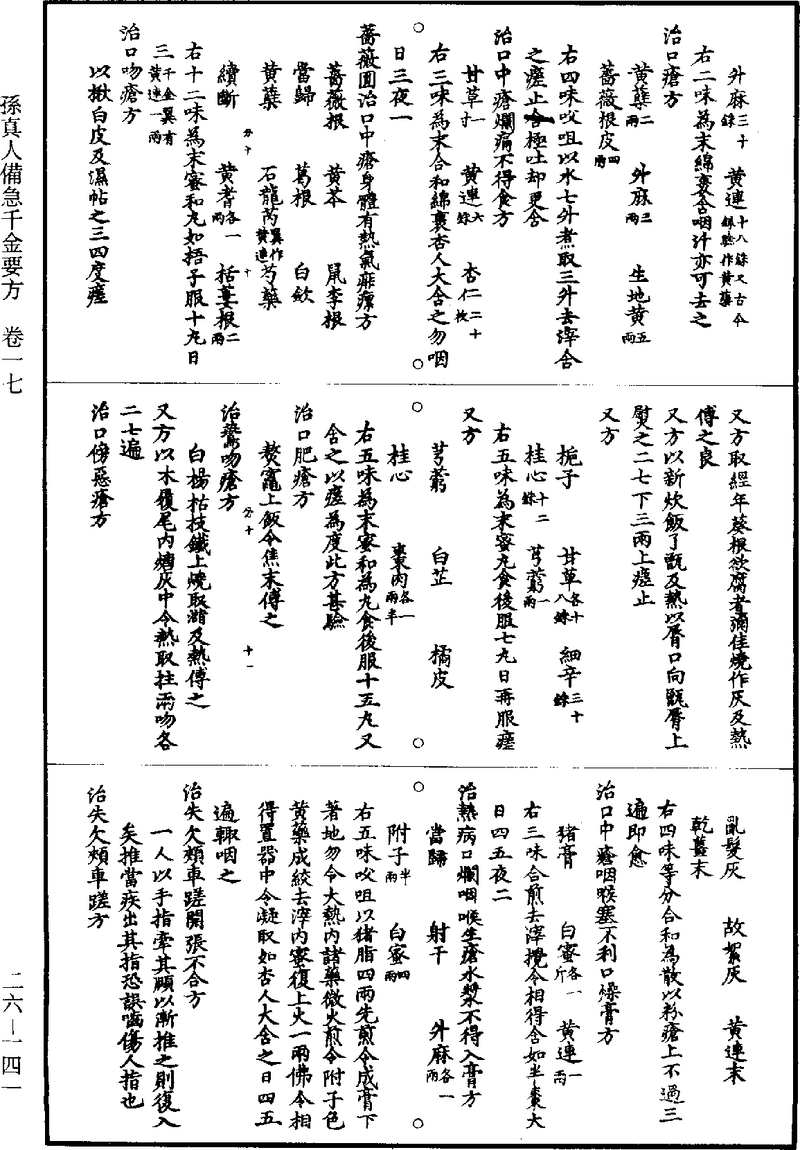 外麻三十銖　黃連十八銖又古今録驗作黃蘗
右二味為末綿褁含咽汁亦可去之
治口瘡方
黃蘗二兩　外麻三兩　生地黃五兩
薔薇根皮四兩
右四味㕮咀以水七外煮取三外去滓含
之瘥止含極吐却更含
治口中瘡爛痛不得食方
甘草一寸　黃連六銖　杏仁二十枚
右三味為末合和綿褁杏人大含之勿咽
日三夜一
薔薇圓治口中瘡身體有熱氣痱瘰方
薔薇根　黃芩　鼠李根
當歸　葛根　白歛
黃蘗　石龍芮翼作黃連　芍藥
續斷　黃耆各一兩　栝蔞根二兩
右十二味為末蜜和丸如捂子服十丸日
三千金翼有黃連一兩
治口吻瘡方
以楸白皮及濕帖之三四度瘥
又方取經年葵根欲腐者彌佳燒作灰及熱
傅之良
又方以新炊飯了甑及熱以脣口向甑脣上
熨之二七下三兩上瘥止
又方
梔子　甘草各十八銖　細辛三十銖
桂心十二銖　芎藭一兩
右五味為末蜜丸食後服七丸日再服瘥
又方
芎藭　白芷　橘皮
桂心　棗肉各一兩半
右五味為末蜜和為丸食後服十五丸又
含之以瘥為度此方甚驗
治口肥瘡方
熬竈上飯令焦末傅之
治鷰吻瘡方
白楊枯枝鐵上燒取瀋及熱傅之
又方以木履尾内煻灰中令熱取拄兩吻各
二七遍
治口傍惡瘡方
亂髮灰　故絮灰　黃連末
乾薑末
右四味等分合和為散以粉瘡上不過三
遍即愈
治口中瘡咽喉塞不利口燥膏方
猪膏　白蜜各一斤　黃連一兩
右三味合煎去滓攪令相得含如半棗大
日四五夜二
治熱病口爛咽喉生瘡水漿不得入膏方
當歸　射干　外麻各一兩
附子半兩　白蜜四兩
右五味㕮咀以猪脂四兩先煎令成膏下
著地勿令大熱内諸藥微火煎令附子色
黃藥成絞去滓内蜜復上火一兩佛令相
得置器中令凝取如杏人大含之日四五
遍輒咽之
治失欠頰車蹉開張不合方
一人以手指牽其頤以漸推之則復入
矣推當疾出其指恐誤嚙傷人指也
治失欠頰車蹉方
孫真人備急千金要方　卷一七
二六－一四一